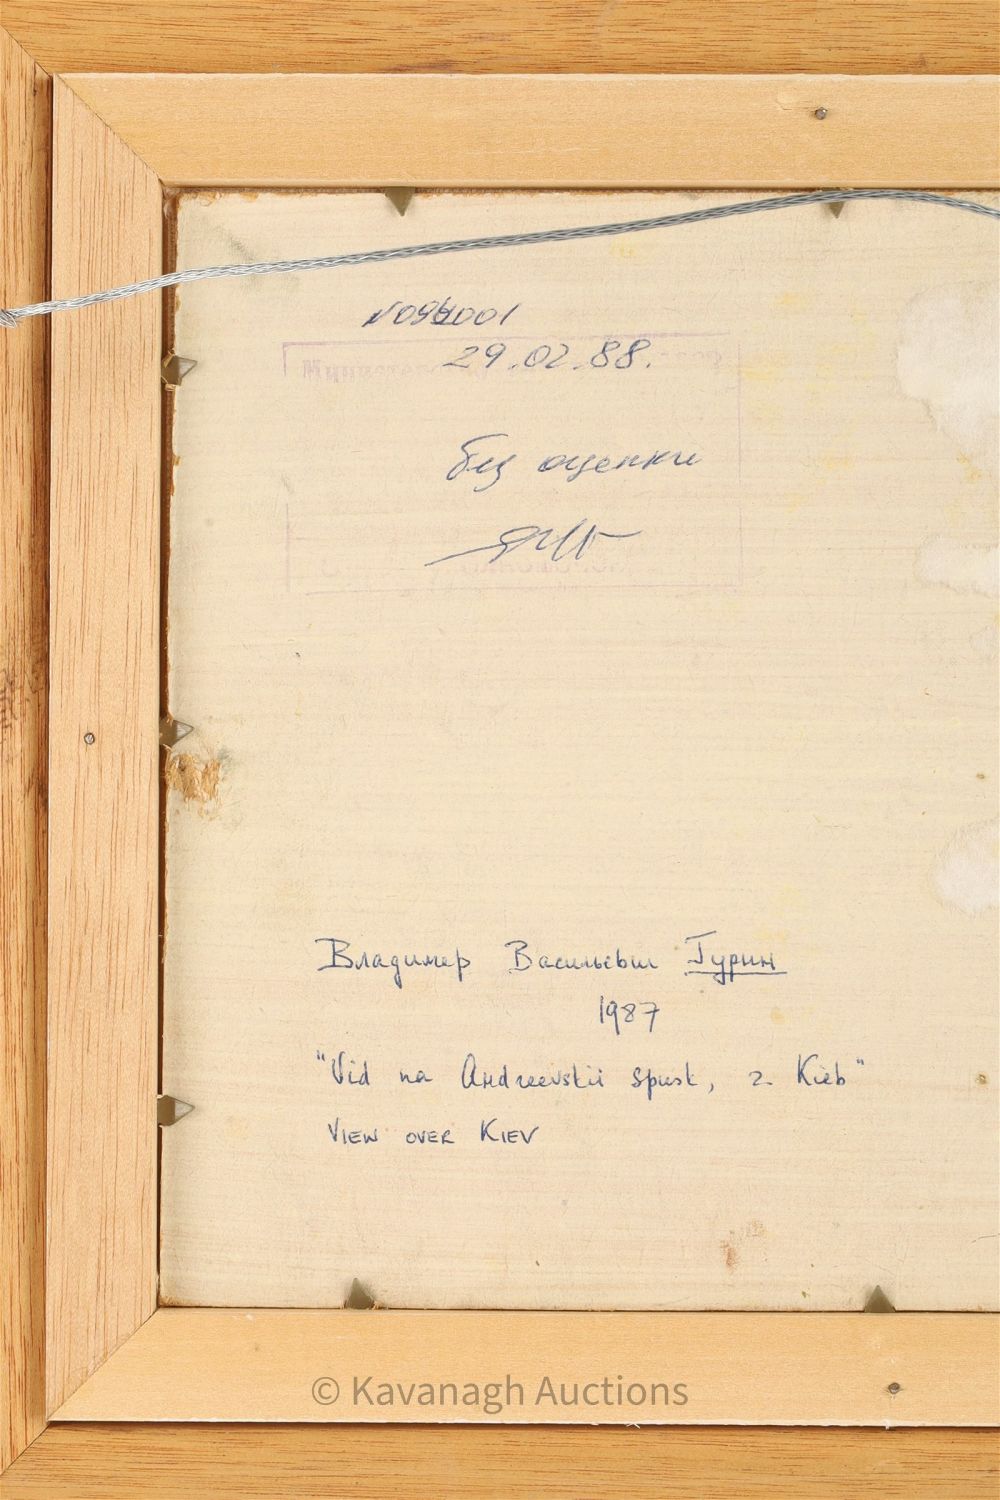 29.02.88.
без оценки
Владимер Васильевич Гурин
1987
"Vid na Andreevskii spusk, г. Kieb"
VIEW OVER KIEV
© Kavanagh Auctions